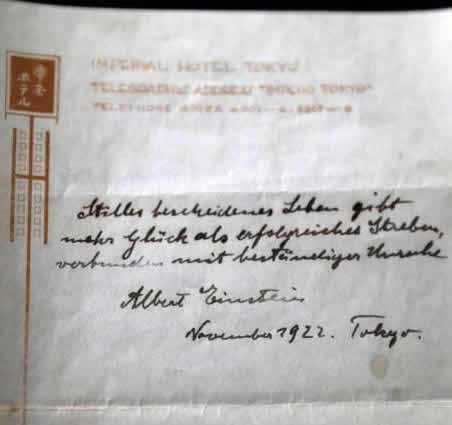 ホテル
IMPERIAL HOTEL TOKYO
TELEGRAPHIC ADDRESS "IMPEHO TOKYO"
TELEPHONE GINZA
Stilles bescheidenes Leben gibt
mehr Glück als erfolgreiches Streben,
verbunden mit beständiger Unruhe
Albert Einstein
November 1922. Tokyo.